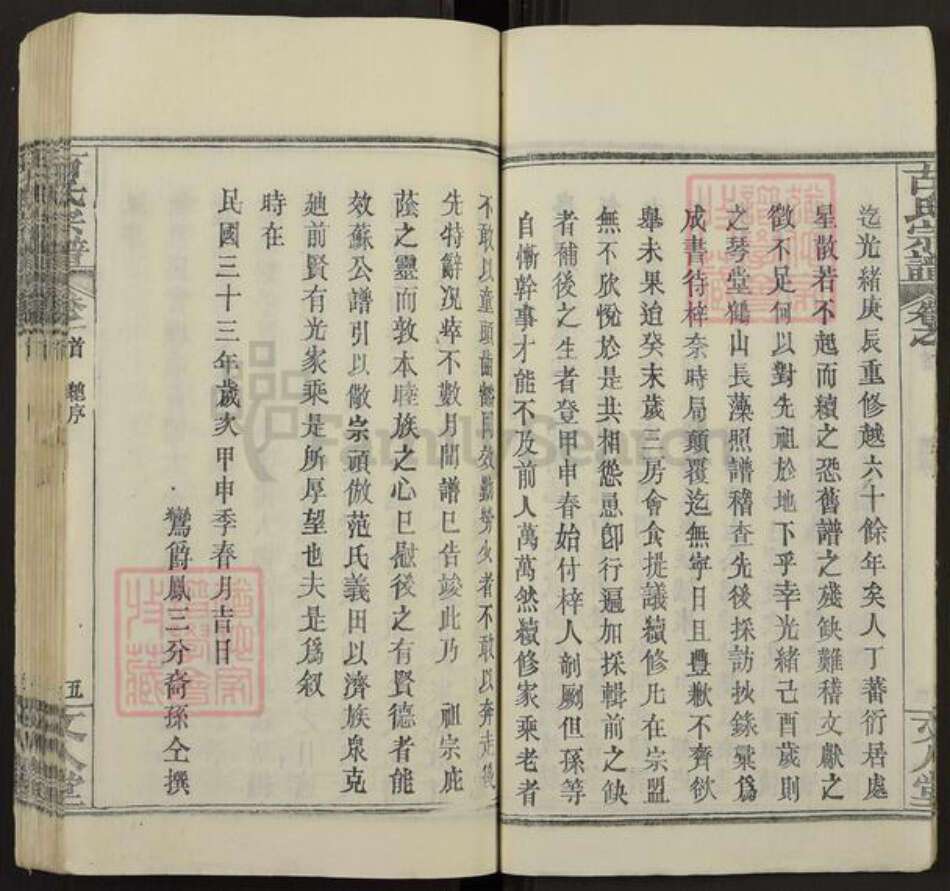 古氏宗譜
卷之首
文人堂
迄光緒庚辰重修越六十餘年矣人丁蕃衍居處
星散若不起而續之恐舊譜之殘缺難稽文獻之
徵不足何以對先祖於地下乎幸光緒己酉歲則
之琴堂鶴山長藻照譜稽查先後採訪抄錄彙爲
成書待梓奈時局顛覆迄無宁日且豐歉不齊欲
舉未果迨癸未歲三房會食提議續修凡在宗盟
無不欣悅於是共相慫恿卽行遍加採輯前之缺
者補後之生者登甲申春始付梓人剞劂但孫等
自慚幹事才能不及前人萬萬然續修家乘老者
不敢以童頭齒豁而效勤勞少者不敢以奔走後
先特辭况瘁不數月間譜已告竣此乃 祖宗庇
蔭之靈而敦本睦族之心已慰後之有賢德者能
效蘇公譜引以儆宗頑倣范氏義田以濟族衆克
廸前賢有光家乘是所厚望也夫是爲叙
時在
民國三十三年歲次甲申季春月吉日
鸞爵鳳三分裔孫仝撰
古氏宗譜
卷之首 總序
五
文人堂
FamilySearch